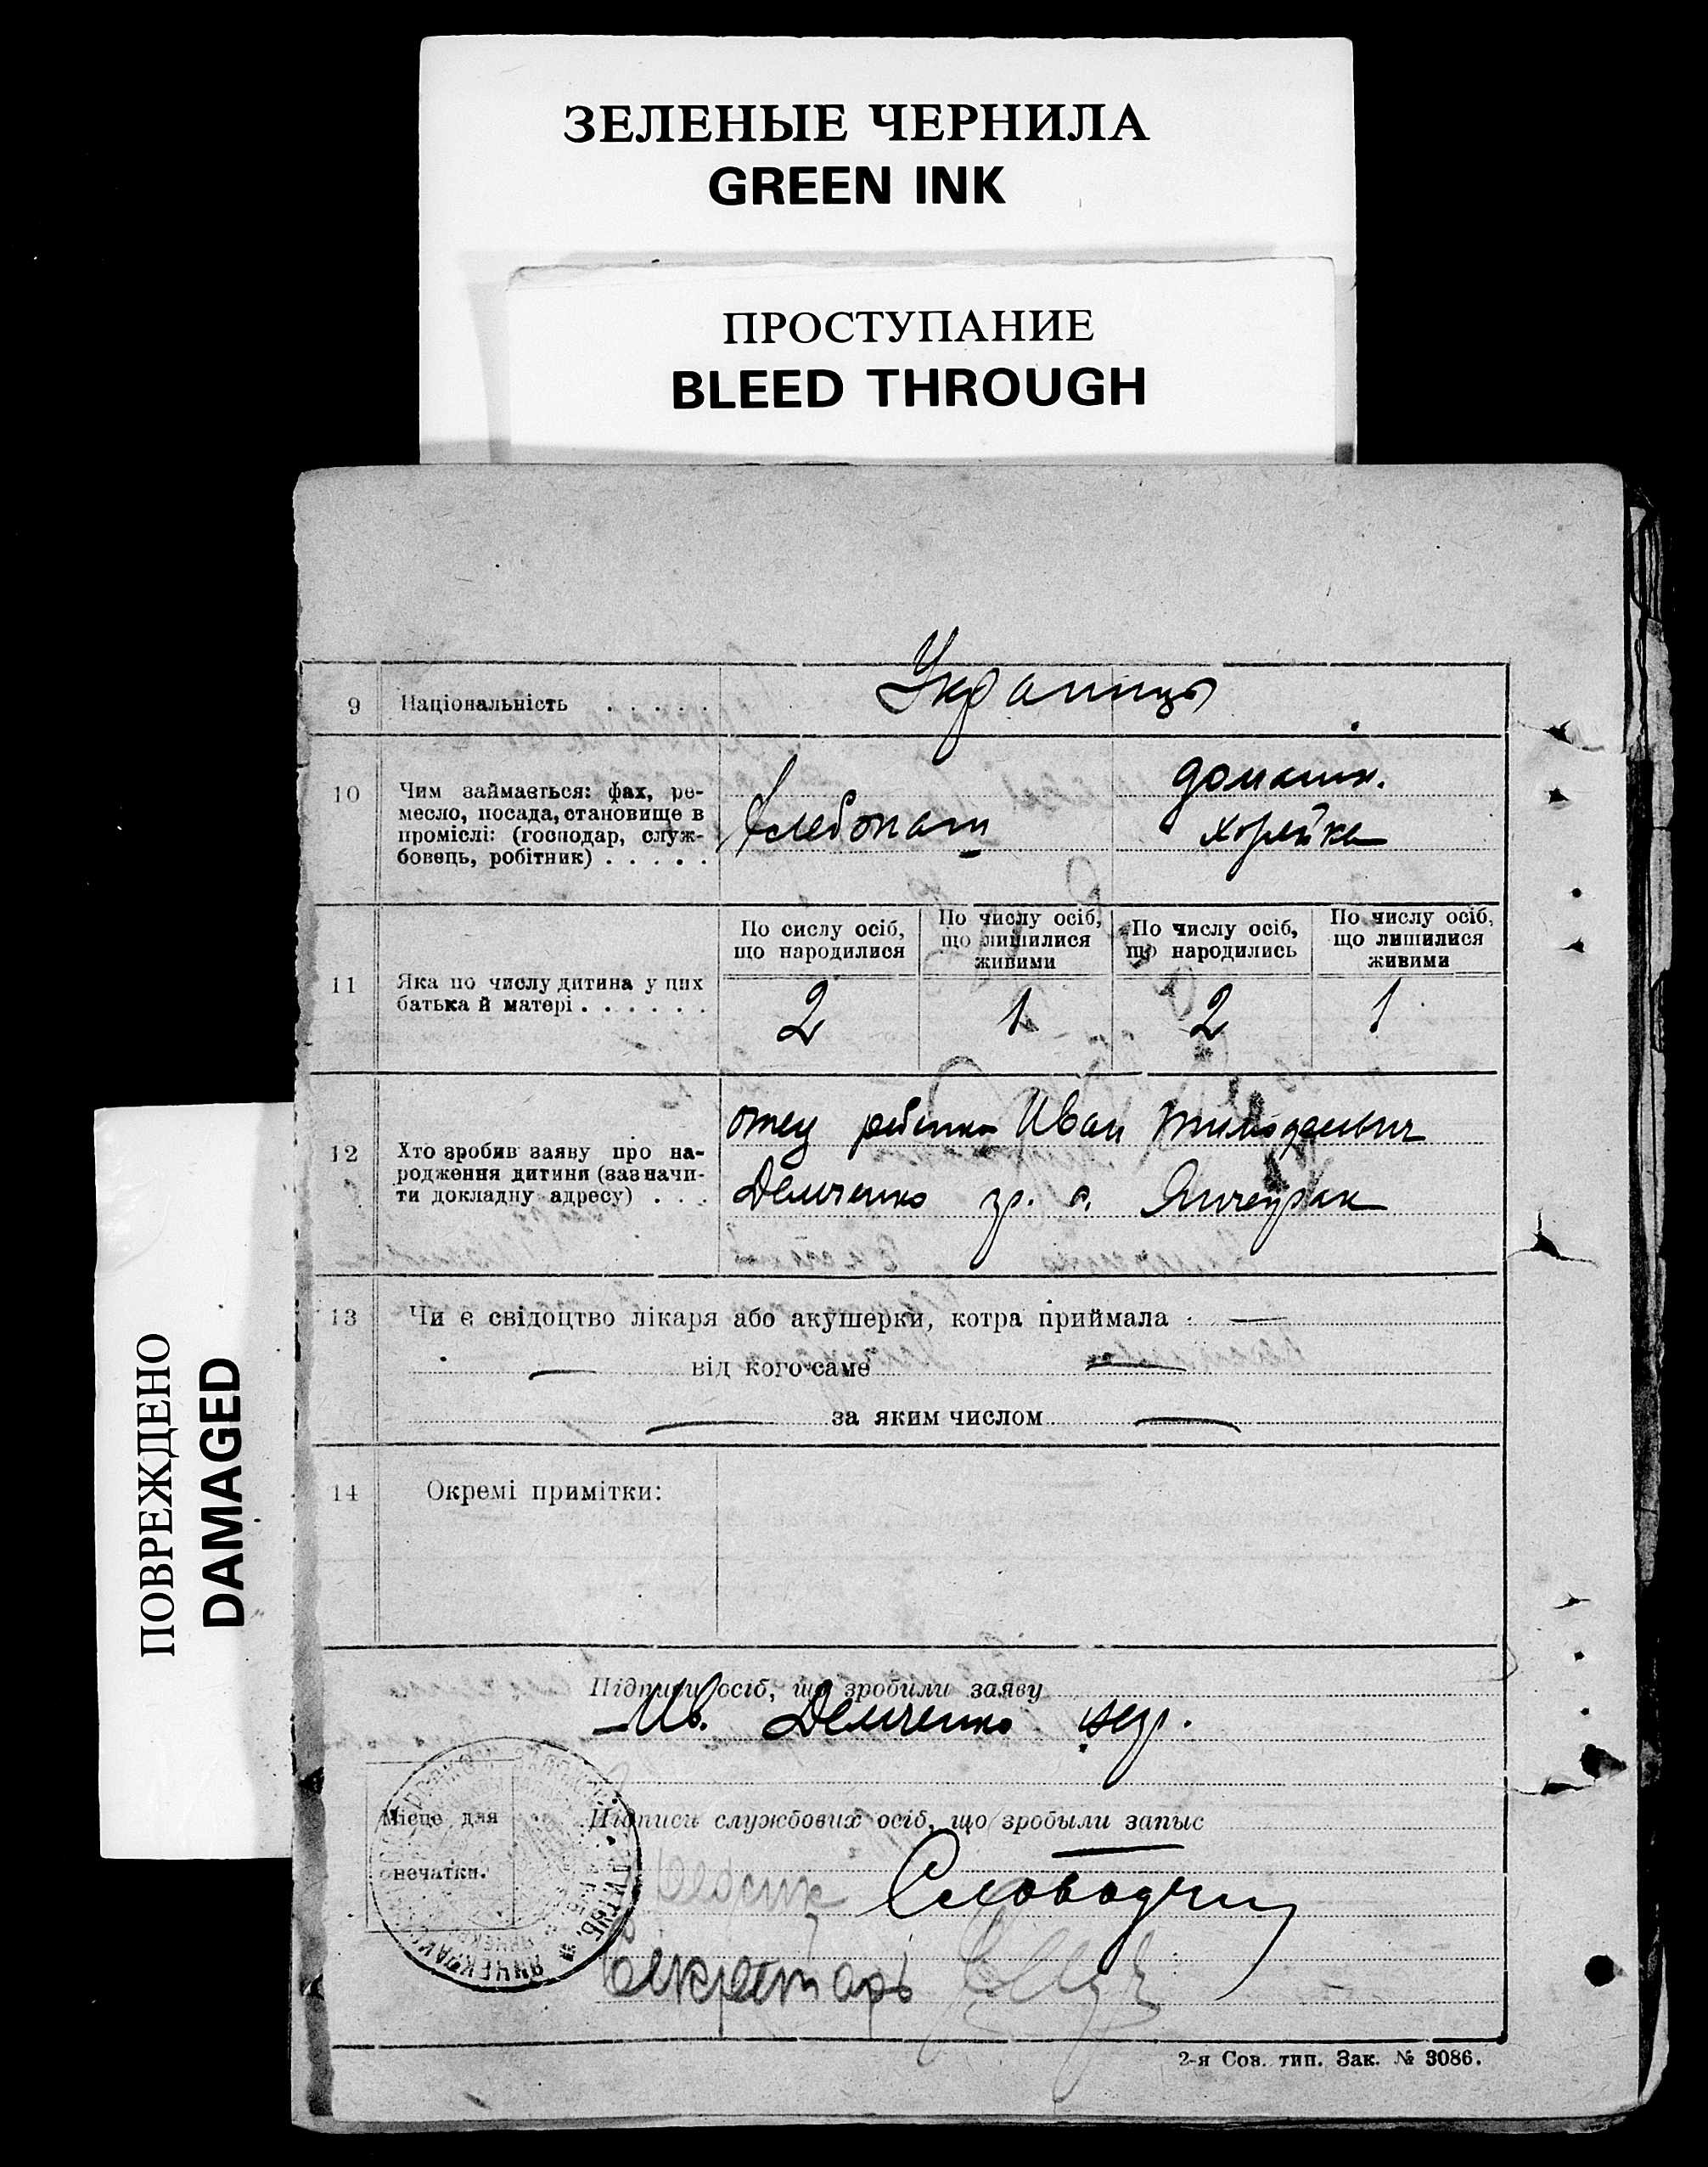 ЗЕЛЕНЫЕ ЧЕРНИЛА
GREEN INK
ПРОСТУПАНИЕ
BLEED THROUGH
ПОВРЕЖДЕНО
DAMAGED
9 Національність . . . . . Украинцы
10 Чим займається: фах, ре-
месло, посада, становище в
проміслі: (господар, служ-
бовець, робітник) . . . . .
Хлебопаш
домашн.
хозяйка
11 Яка по числу дитина у цих
батька й матері . . . . . .
По сислу осіб,
що народилися
По числу осіб,
що лишилися
живими
По числу осіб,
що народились
По числу осіб,
що лишилися
живими
2 1 2 1
12 Хто зробив заяву про на-
родження дитини (зазначи-
ти докладну адресу) . . .
отец ребенка Иван
Демченко гр. с. Янчекрак
13 Чи є свідоцтво лікаря або акушерки, котра приймала —
— від кого саме —
— за яким числом —
14 Окремі примітки:
Підписи осіб, що зробили заяву
Ив. Демченко негр.
Місце для
печатки.
Підписи службових осіб, що зробыли запыс
Секретарь
2-я Сов. тип. Зак. № 3086.